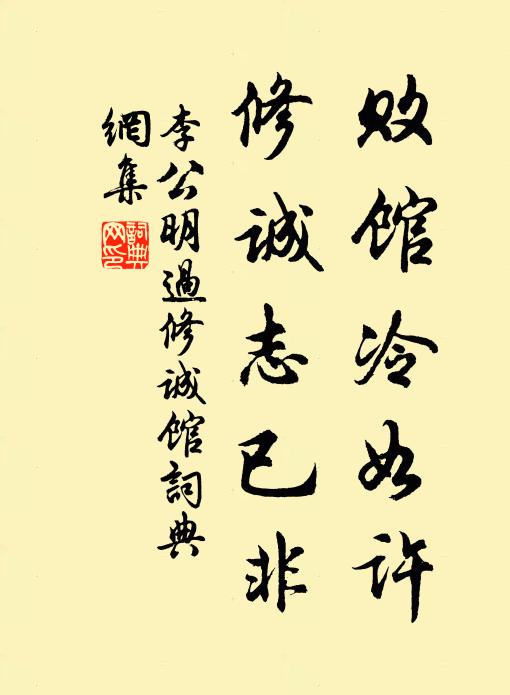 败馆冷如许
修诚志已非
李公明過修诚馆詞典
網集
詞典網印